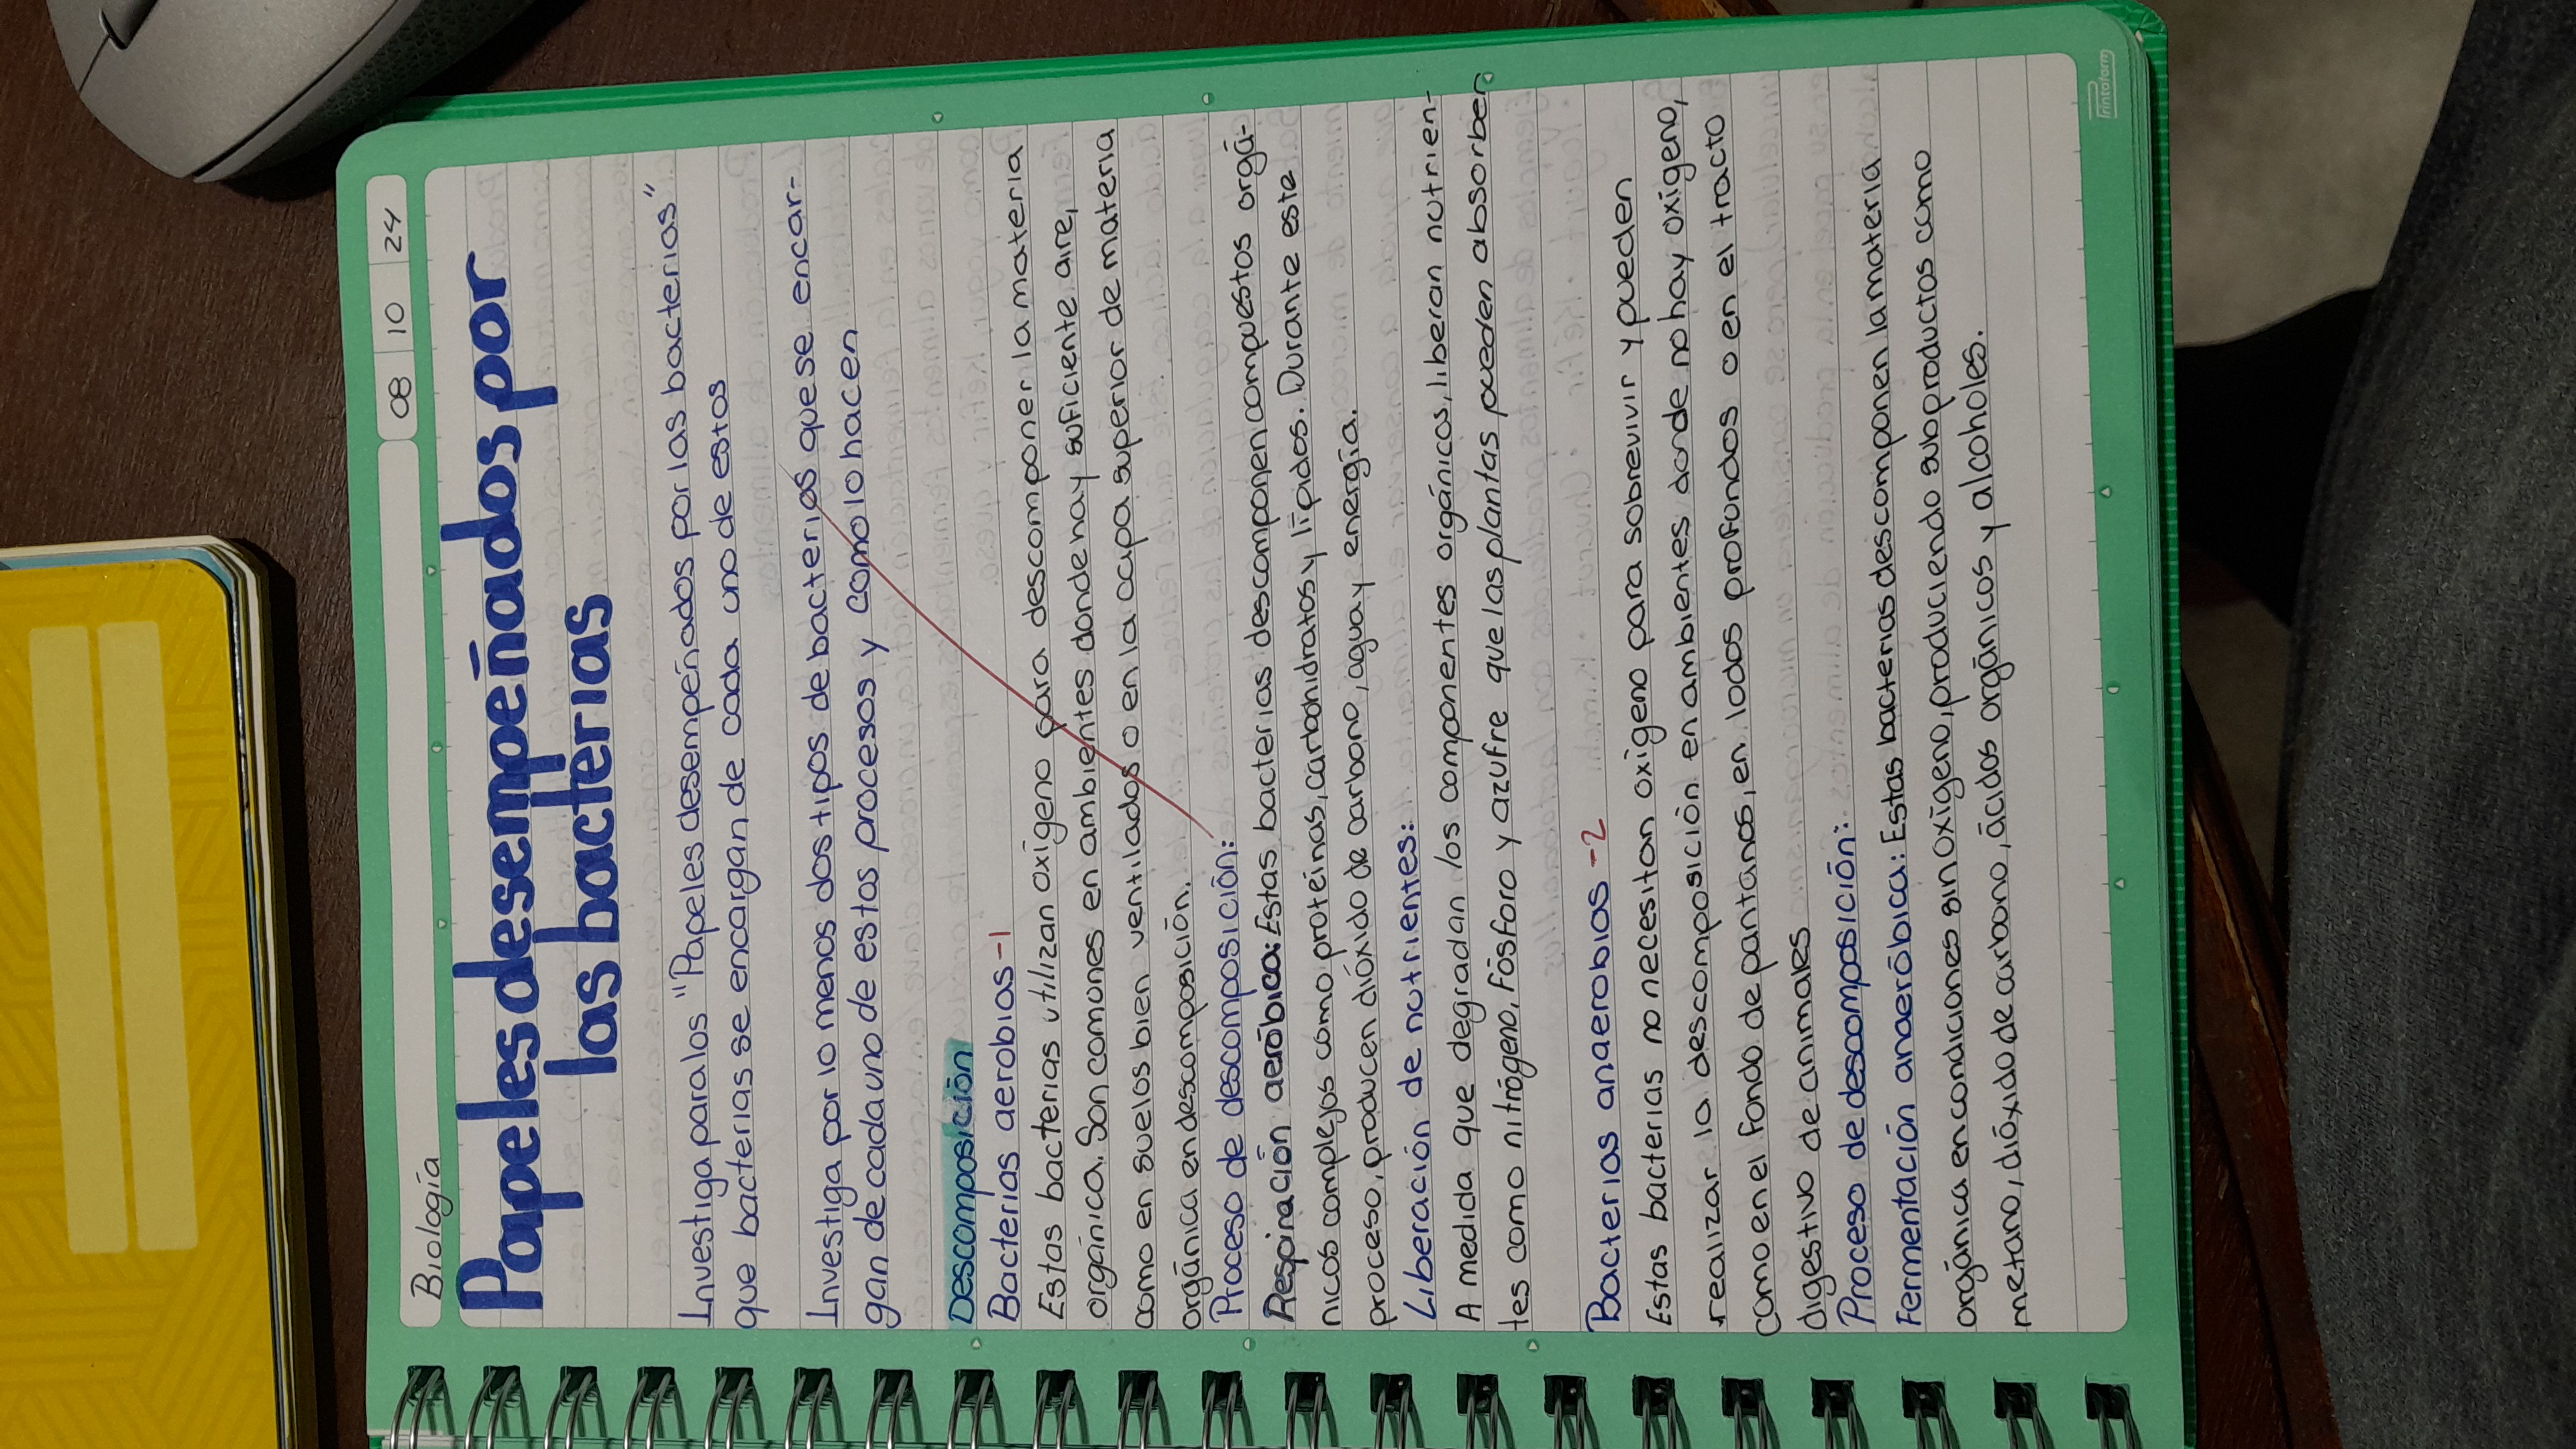 Biología
08 10 24
Papeles desempeñados por
las bacterias
Investiga para los "Papeles desempeñados por las bacterias"
que bacterias se encargan de cada uno de estos
Investiga por lo menos dos tipos de bacterias que se encar-
gan de cada uno de estos procesos y como lo hacen
Descomposición
Bacterias aerobias -1
Estas bacterias utilizan oxígeno para descomponer la materia
orgánica. Son comunes en ambientes donde hay suficiente aire,
como en suelos bien ventilados o en la capa superior de materia
orgánica en descomposición.
Proceso de descomposición:
Respiración aeróbica: Estas bacterias descomponen compuestos orgá-
nicos complejos como proteínas, carbohidratos y lípidos. Durante este
proceso, producen dióxido de carbono, agua y energía.
Liberación de nutrientes:
A medida que degradan los componentes orgánicos, liberan nutrien-
tes como nitrógeno, fósforo y azufre que las plantas pueden absorber
Bacterias anaerobias -2
Estas bacterias no necesitan oxígeno para sobrevivir y pueden
realizar la descomposición en ambientes donde no hay oxígeno,
como en el fondo de pantanos, en lodos profundos o en el tracto
digestivo de animales
Proceso de descomposición:
Fermentación anaeróbica: Estas bacterias descomponen la materia
orgánica en condiciones sin oxígeno, produciendo subproductos como
metano, dióxido de carbono, ácidos orgánicos y alcoholes.
Printaform